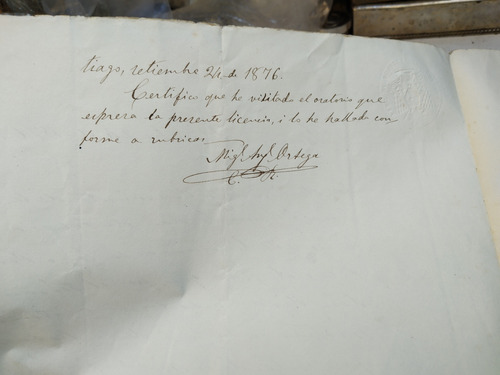 tiago, setiembre 24 de 1876.
Certifico que he visitado el oratorio que
espresa la presente licencia, i lo he hallado con
forme a rubricas.
Migl. Angl. Ortega
C. R.